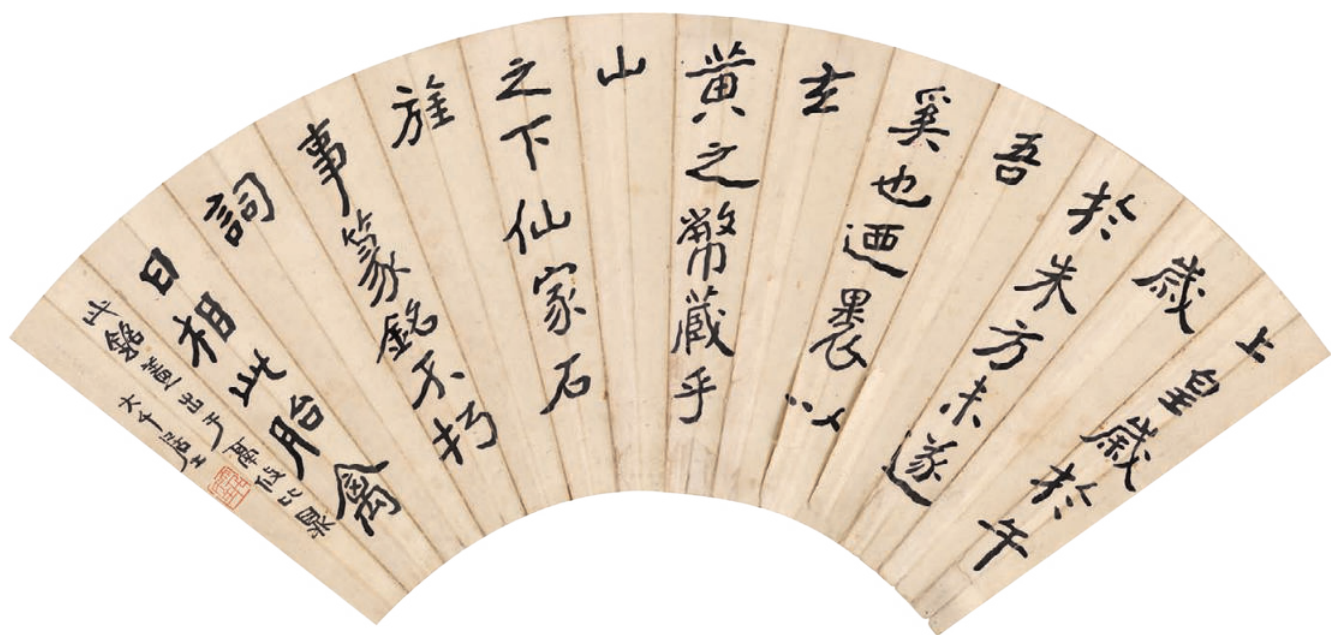 上皇歲於午
歲
於朱方未遂
吾
奚也迺裹以
玄
黄之幣藏乎
山
之下仙家石
旌
事篆銘不朽
詞
曰相此胎禽
此銘蓋出于鬲攸比鼎
大千居士